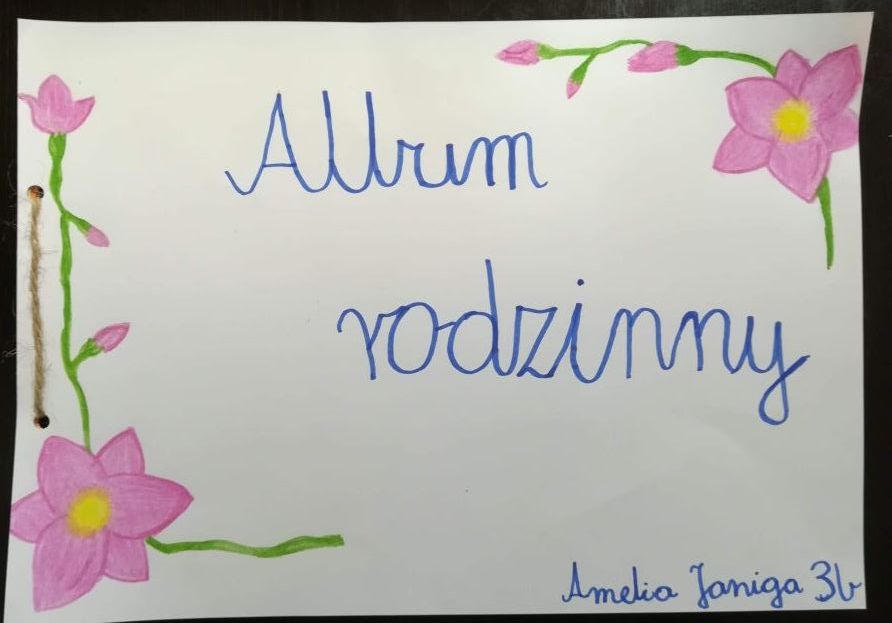 Album
rodzinny
Amelia Janiga 3b